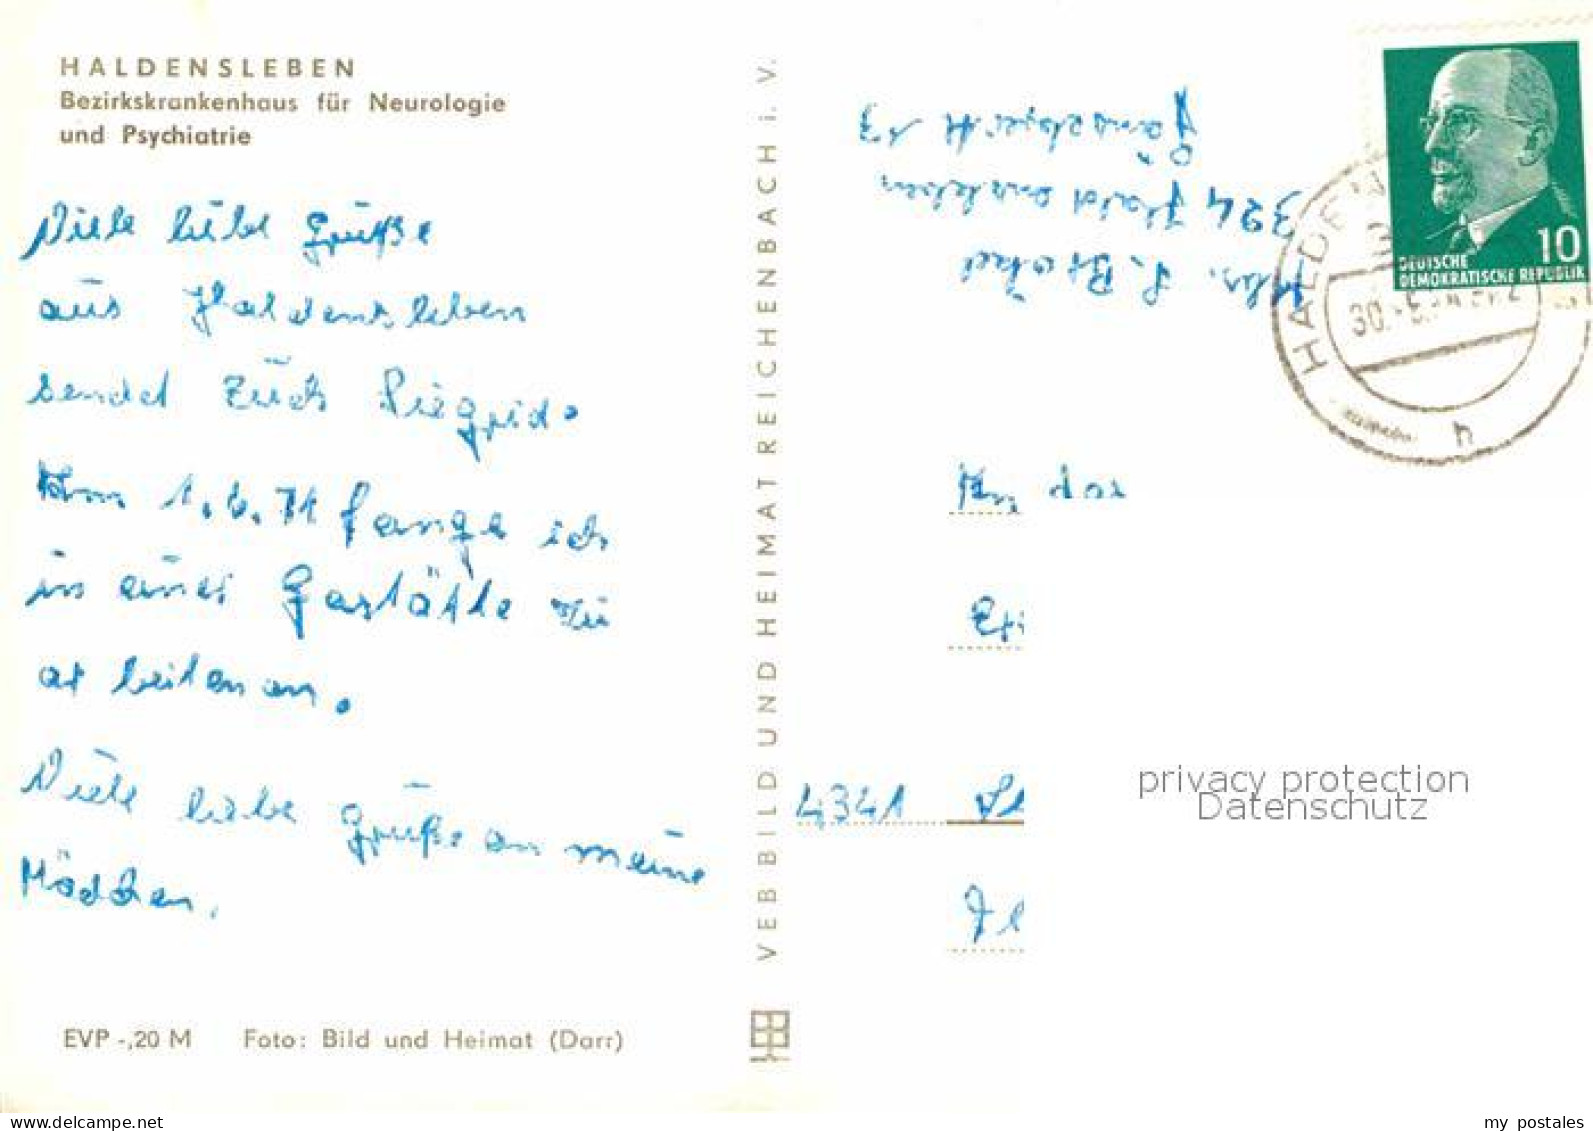 HALDENSLEBEN
Bezirkskrankenhaus für Neurologie
und Psychiatrie
Viele liebe Grüße
aus Haldensleben
sendet Euch Siegrid.
Am 1.6.71 fange ich
in einer Gastätte zu
arbeiten an.
Viele liebe Grüße an meine
Mädchen.
EVP -,20 M Foto: Bild und Heimat (Darr)
VEB BILD UND HEIMAT REICHENBACH i. V.
Abs. S.
324 Haldensleben
13
10
DEUTSCHE
DEMOKRATISCHE REPUBLIK
HALDEN
30.
h
An das
4341
privacy protection
Datenschutz
www.delcampe.net
my_postales